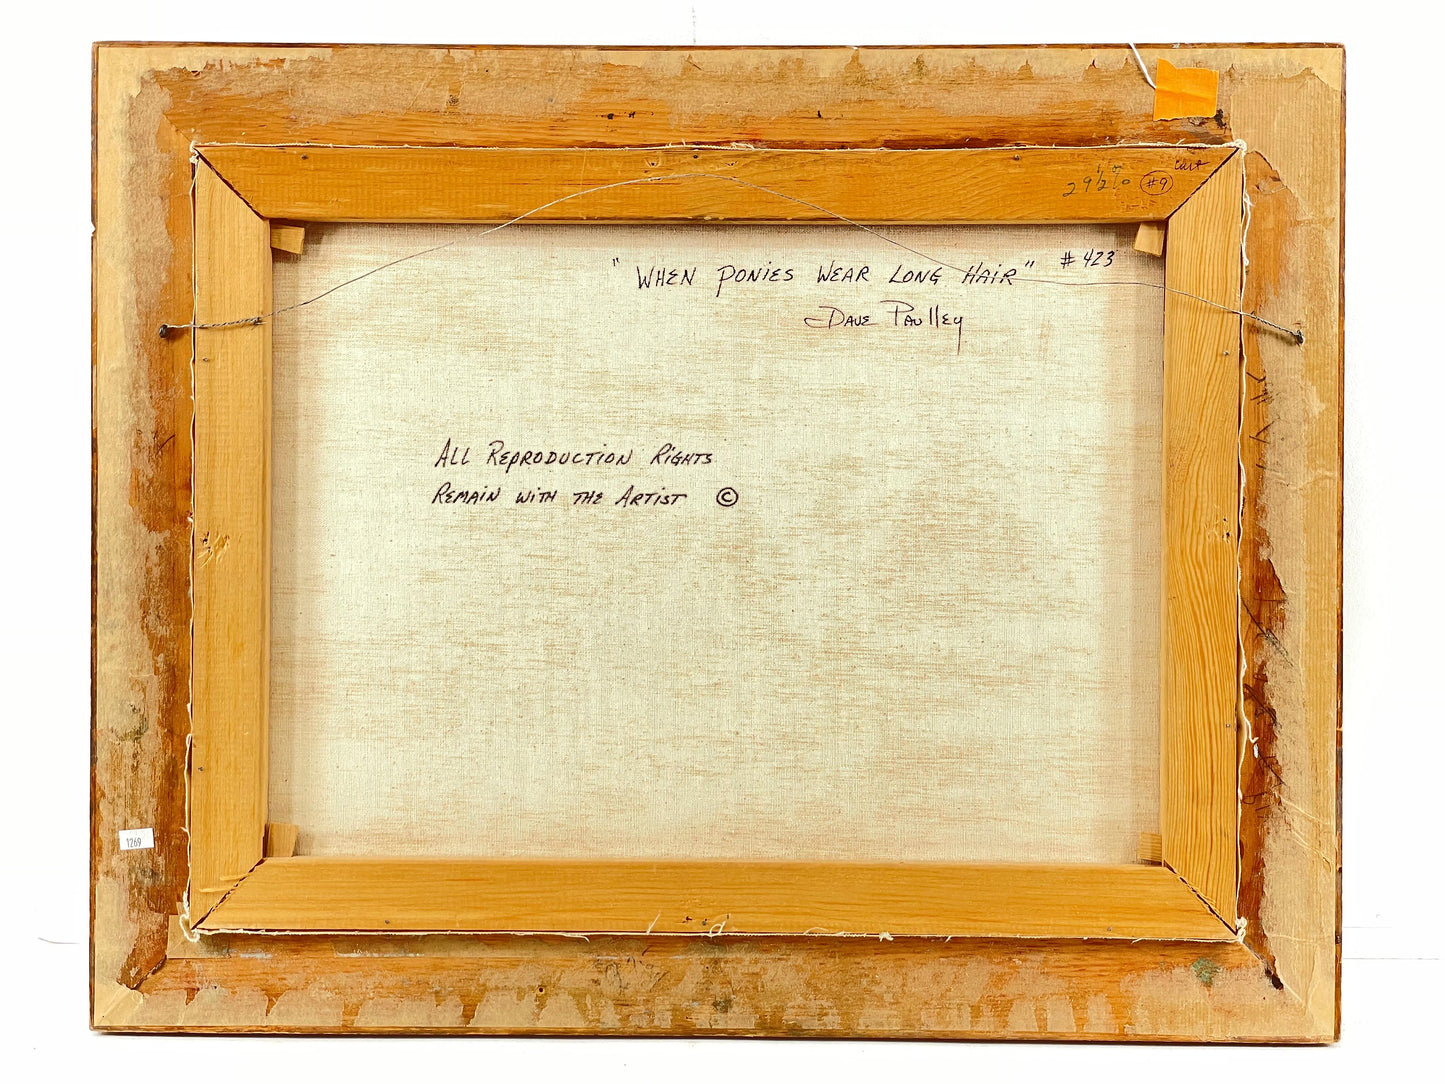 #9
"When Ponies Wear Long Hair" #423
Dave Paulley
All Reproduction Rights
Remain with the Artist ©
1269